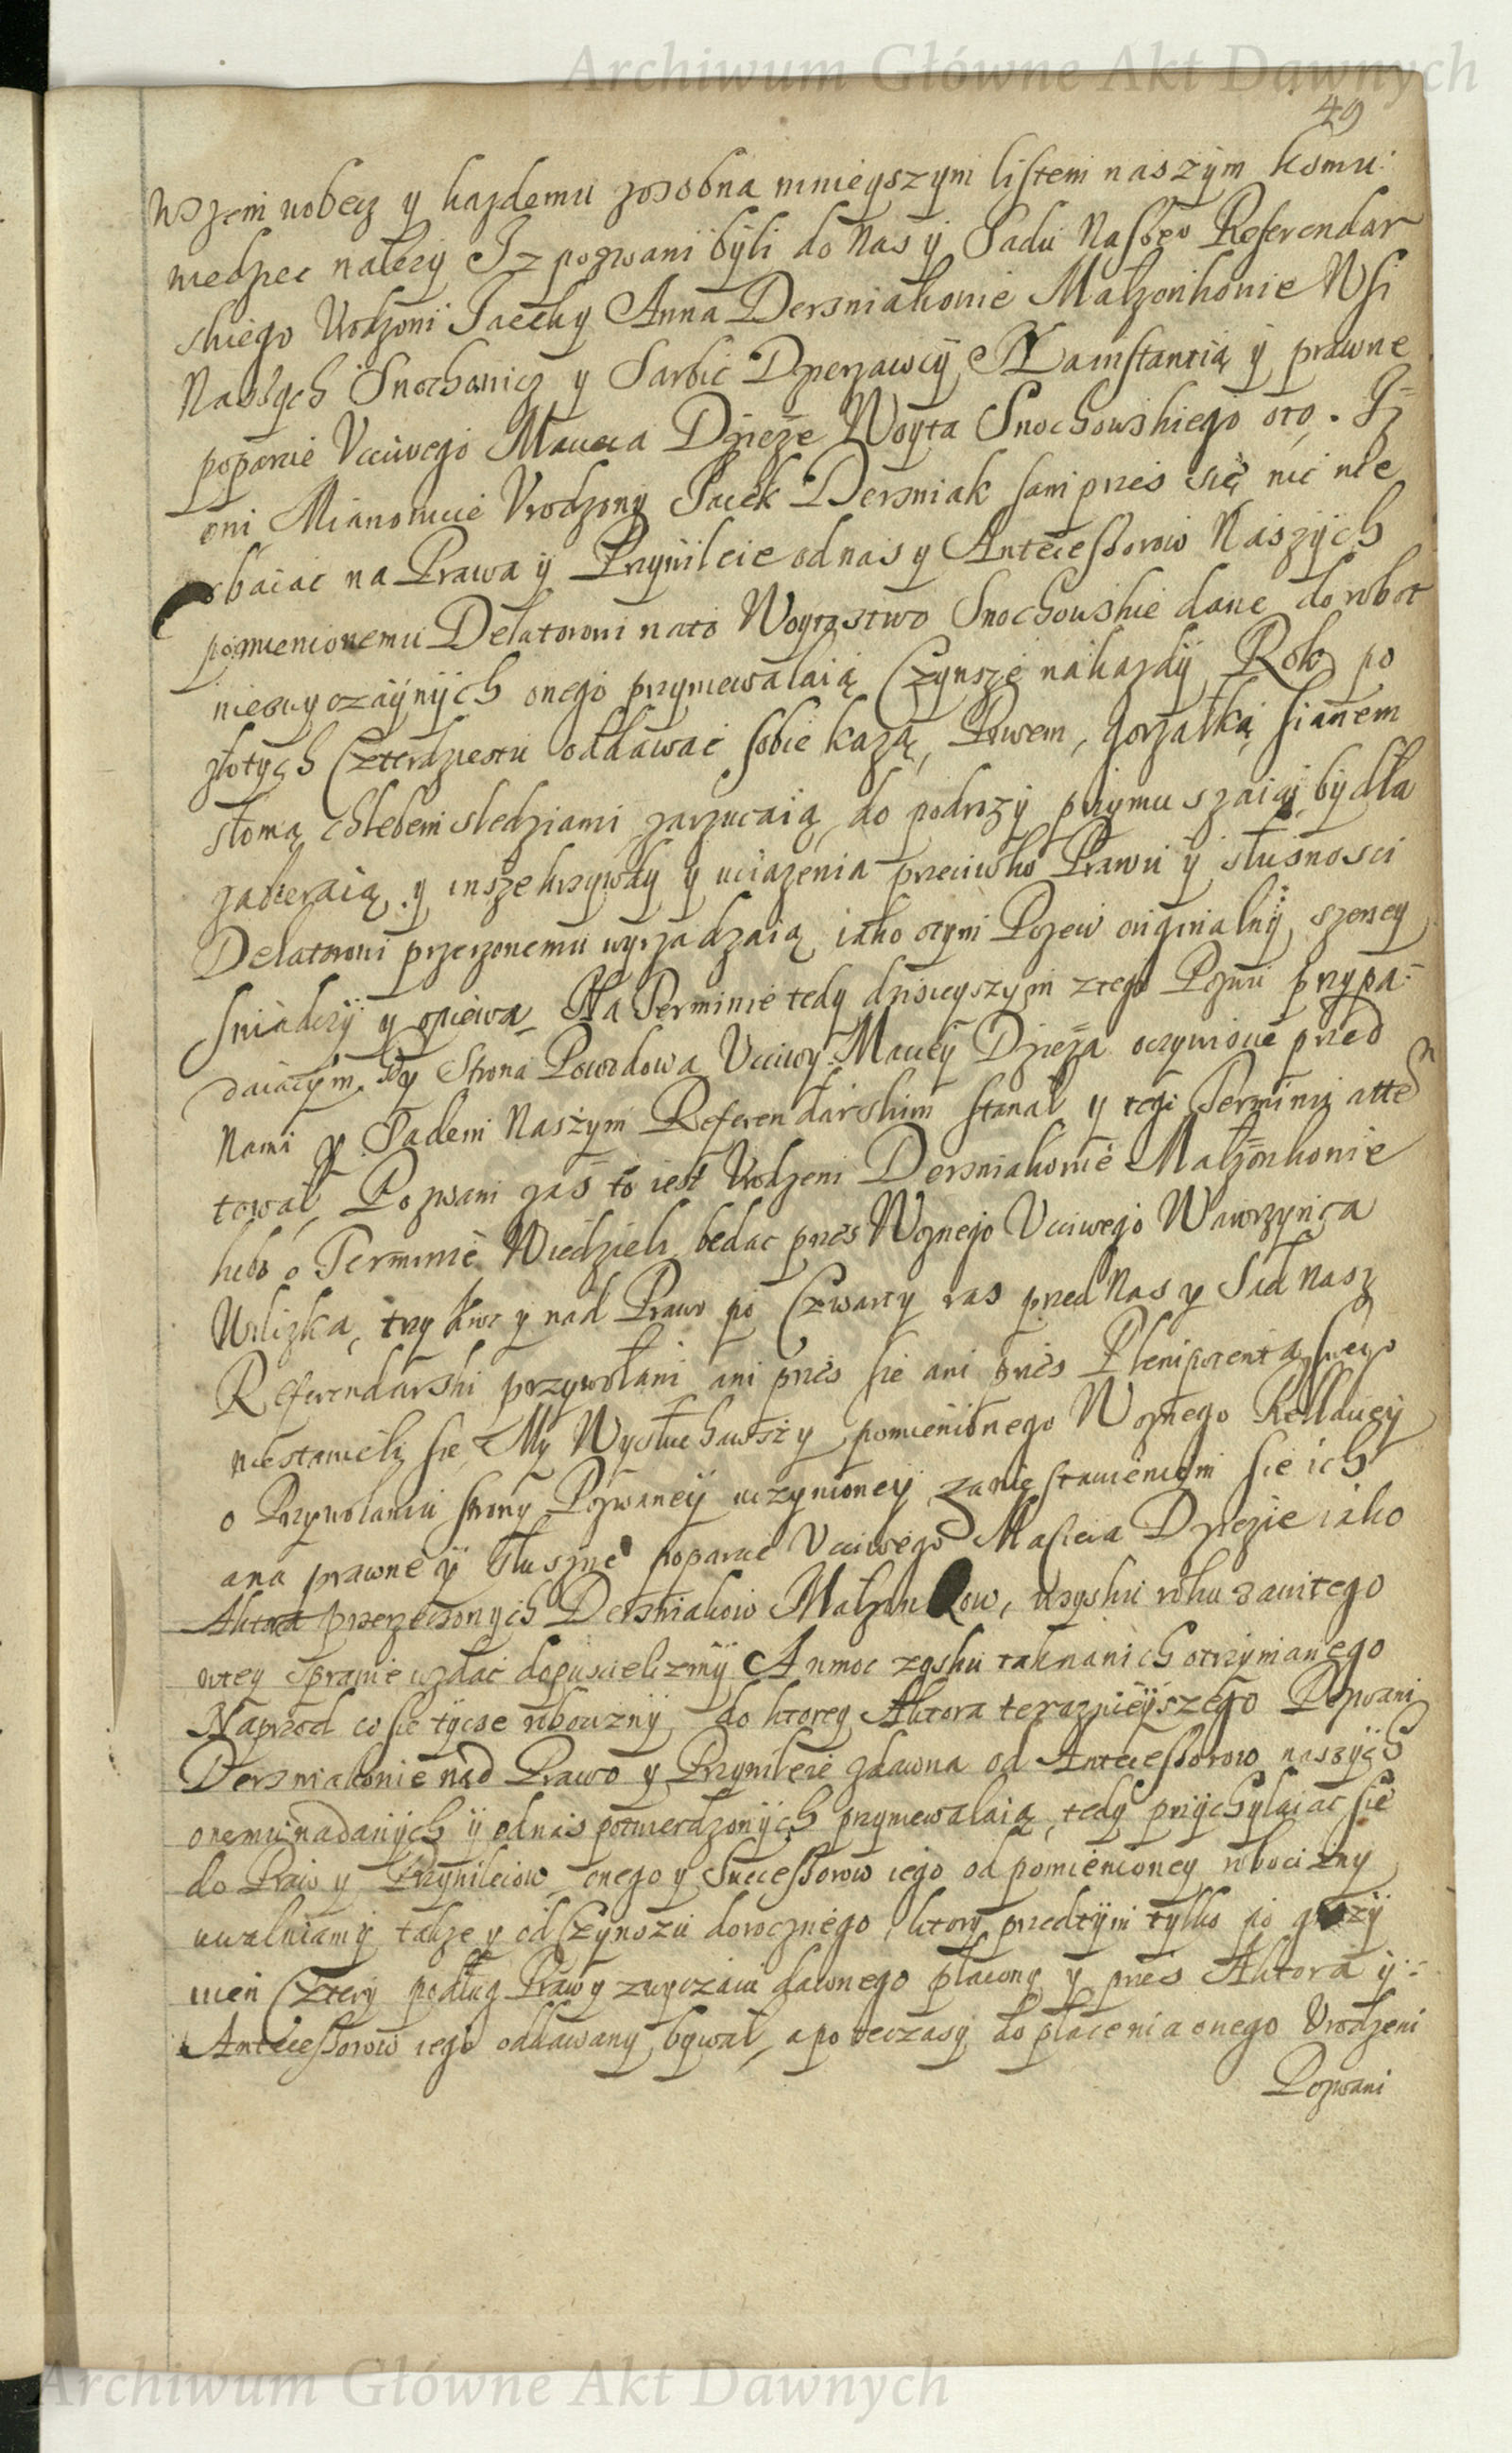 Archiwum Główne Akt Dawnych
49
wszem wobecz y kazdemu zosobna mnieyszym listem naszym komu
wiedziec nalezy Iz pozwani byli do Nas y Sadu Naszego Referendar
skiego Urodzoni Jacek y Anna Dersniakowie Małzonkowie Wsi
Naszych Snochowicz y Sarbic Dzierzawcy Na instantią y prawne
poparcie Uccziwego Macieia Dzieze Woyta Snochowskiego oto. Iz
oni Mianowicie Vrodzony Jacek Dersniak sam przes się nic nie
dbaiac na Prawa y Przywileie od nas y Antecessorow Naszych
pomienionemu Delatorowi na to Woytostwo Snochowskie dane do robot
niezwyczaynych onego przyniewalaią Czynsze na kazdy Rok po
złotych Czterdziestu oddawac sobie kazą, Piwem, gorzałką sianem
słomą chlebem sledziami zarzucaią do podrozy przymuszaią, bydła
zabieraią y insze krzywdy y uciązenia przeciwko Prawu y słusnosci
Delatorowi przerzonemu wyrzadzaią iako o tym Pozew originalny szerzey
swiadczy y opiewa Na Terminie tedy dzisieyszym z tego Pozwu przypa
daiącym. Gdy Strona Powodowa Ucciwy Maciey Dzieza oczywiscie przed
Nami y Sadem Naszym Referendarskim stanał y tego Terminu atten
tował, Pozwani zas to iest Urodzeni Dersniakowie Małzonkowie
lubo o Terminie Wiedzieli bedac przes Woznego Ucciwego Wawrzynca
Uliczka, trzykroc y nad Prawo po Czwarty ras przed Nas y Sad Nasz
Referendarski przywołani ani przes sie ani przes Plenipotenta swego
niestawieli sie, My Wysłuchawszy pomienionego Woznego Rellacyey
o Przywołaniu strony Pozwaney uczynioney za nie stawieniem sie ich
a na prawne y słuszne poparcie Ucciwego Macieia Dziezie iako
Aktora przerzeczonych Dersniakow Małzonkow, w zysku roku zawitego
w tey sprawie wzdać dopuscielizmy A w moc zysku tak na nich otrzymanego
Naprzod co sie tycze robocizny do ktorey Aktora terazniejszego Pozwani
Dersniakowie nad Prawo y Przywileie zdawna od Antecessorow naszych
onemu nadanych y od nas potwierdzonych przyniewalaią, tedy przychylaiac sie
do Praw y Przywileiow onego y Successorow iego od pomienioney robocizny
uwalniamy takze y od Czynszu dorocznego ktory przedtym tylko po grzy
wien Cztery podług Praw y zwyczaiu dawnego płacony y przes Aktora y
Antecessorow iego oddawany bywał, a po te czasy do płacenia onego Urodzeni
Pozwani
Archiwum Główne Akt Dawnych